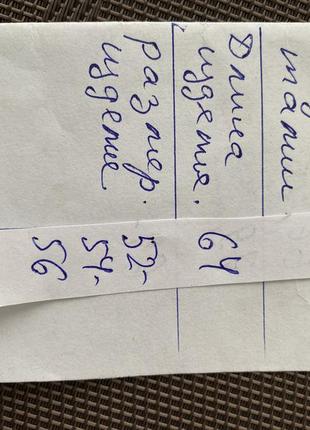 талии
Длина
изделия. 64
размер. 52-
изделие 54-
56